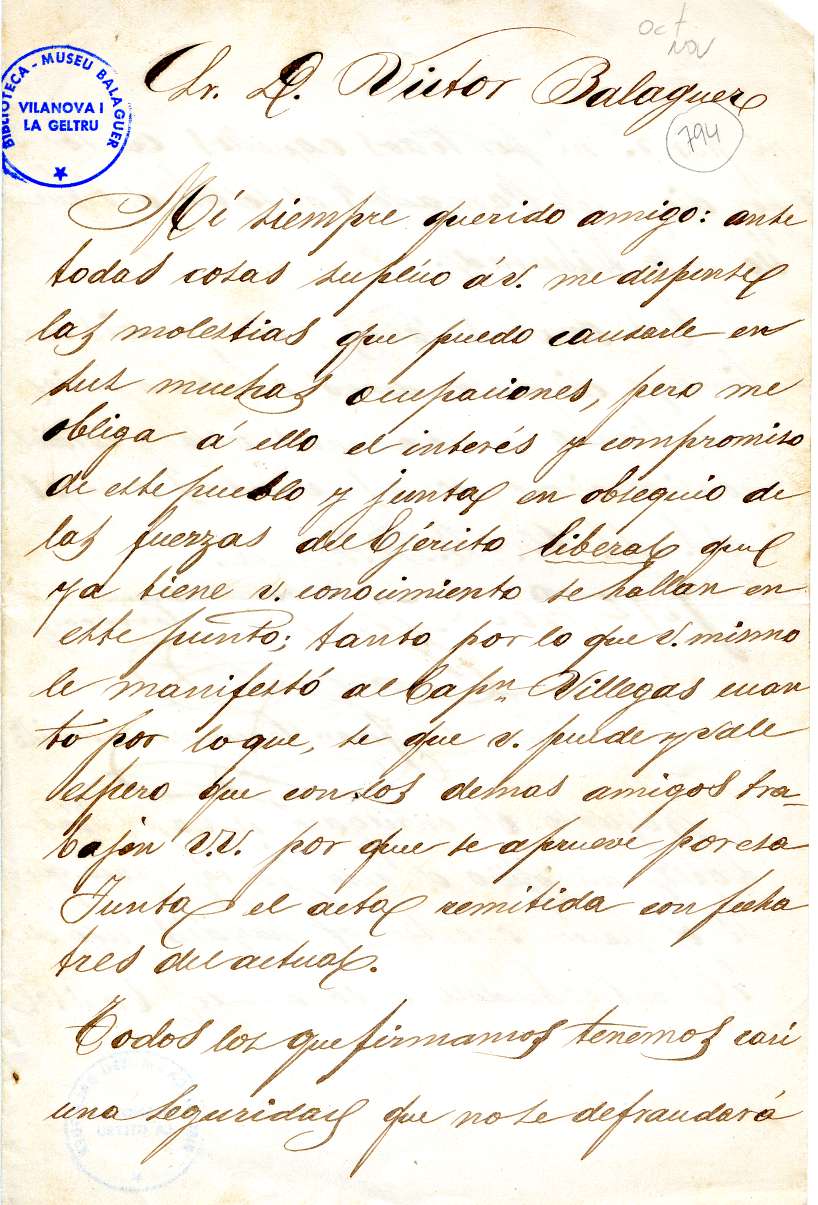 oct
nov
BIBLIOTECA - MUSEU BALAGUER
VILANOVA I
LA GELTRU
Sr. D. Victor Balaguer
794
Mi siempre querido amigo: ante
todas cosas suplico á V. me dispense
las molestias que puedo causarle en
sus muchas ocupaciones, pero me
obliga á ello el interés y compromiso
de este pueblo y junta en obsequio de
las fuerzas del Ejército liberal que
ya tiene V. conocimiento se hallan en
este punto; tanto por lo que V. mismo
le manifestó al Capn. Villegas cuan
to por lo que, se que V. puede y vale
espero que con los demas amigos tra-
bajen V.V. por que se aprueve por esa
Junta el acta remitida con fecha
tres del actual.
Todos los que firmamos tenemos casi
una seguridad que no se defraudará